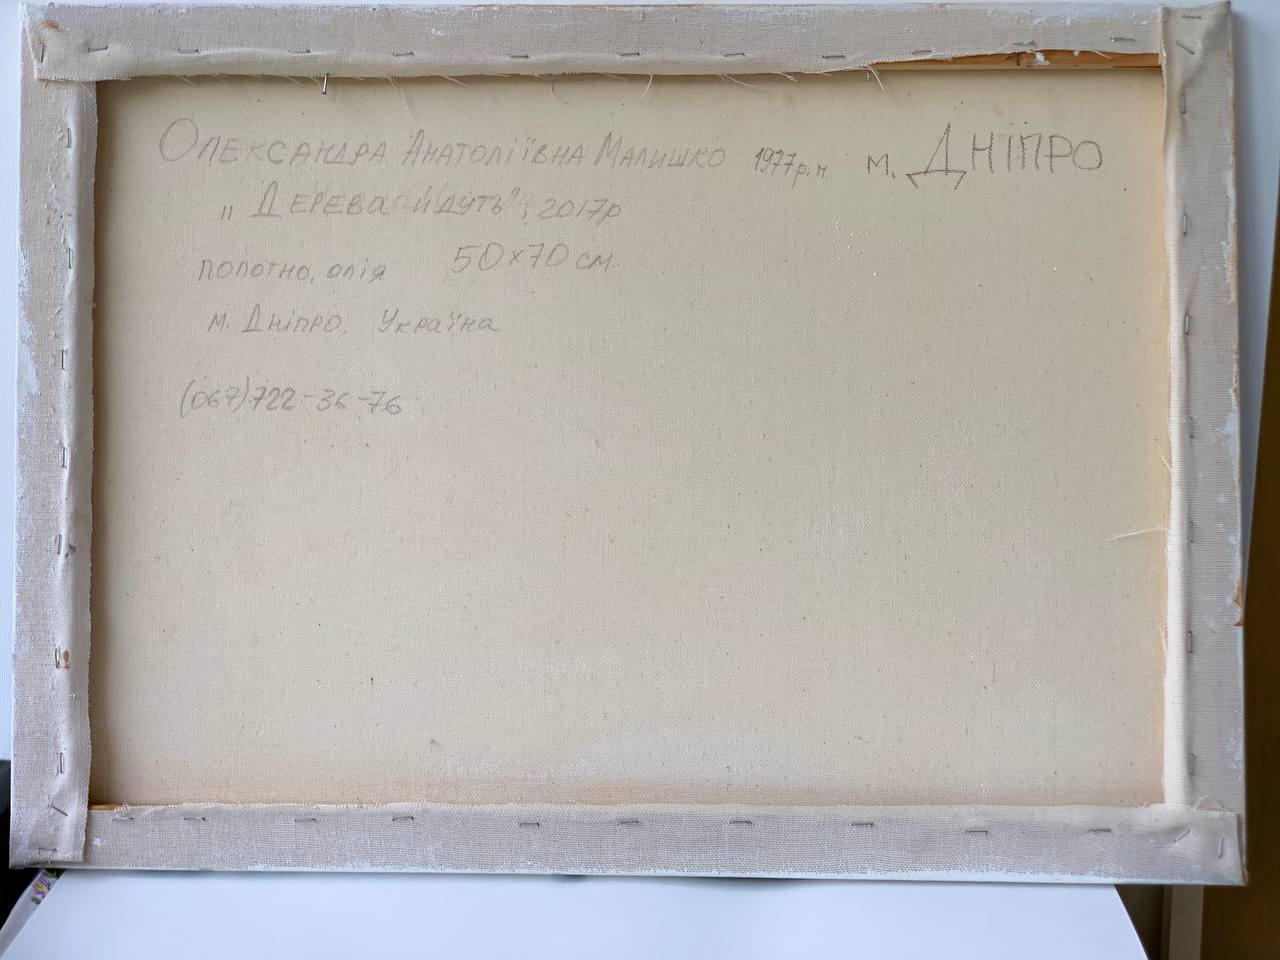 Олександра Анатоліївна Малишко 1977р.н м. Дніпро
„Дерева йдуть", 2017р
полотно, олія 50х70 см
м. Дніпро, Україна
(067) 722-36-76